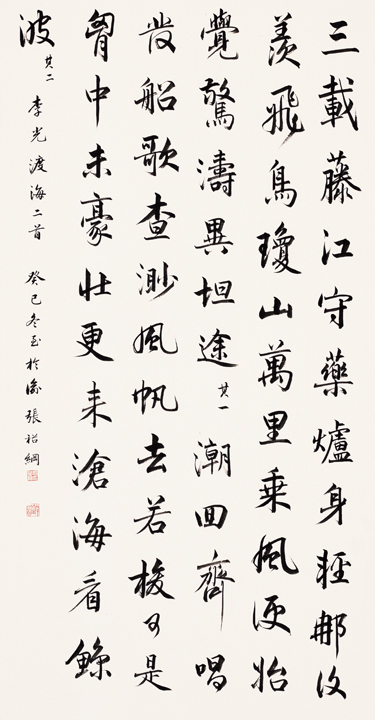 三載藤江守藥爐身輕那復
羨飛鳧瓊山萬里乘風便始
覺驚濤異坦途其一潮回齊唱
發船歌查渺風帆去若梭可是
胸中未豪壯更來滄海看鯨
波其二李光渡海二首癸巳冬至於渝張裕綱